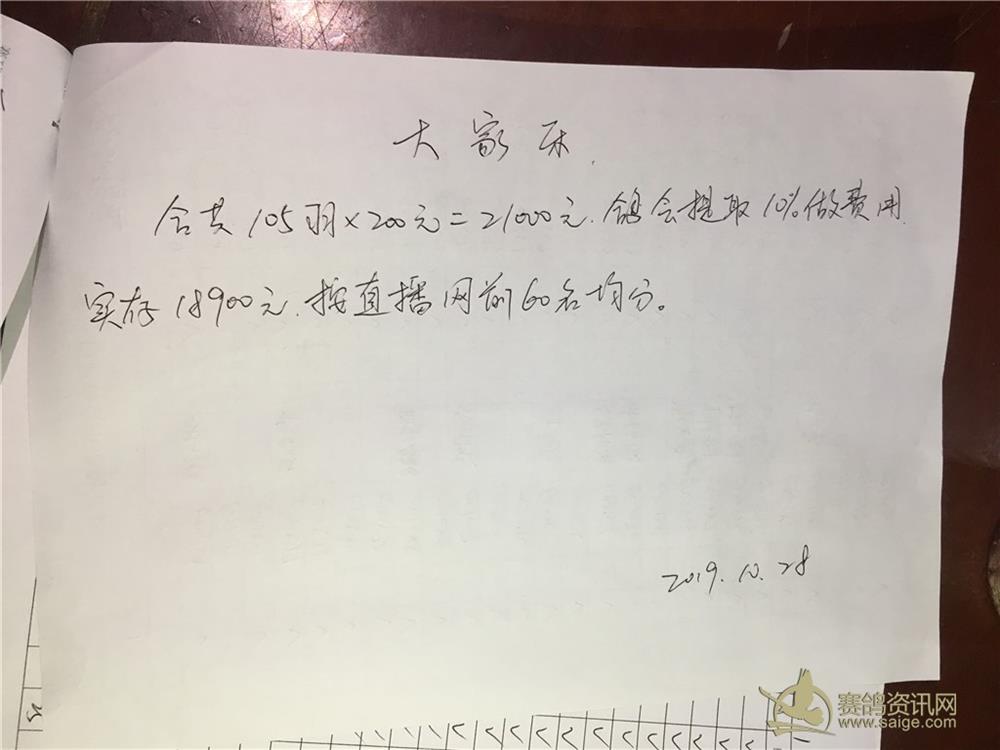 大家乐.
合共105羽×200元=21000元.鸽会提取10%做费用.
实存18900元.按直播网前60名均分。
2019.10.28
赛鸽资讯网
www.saige.com